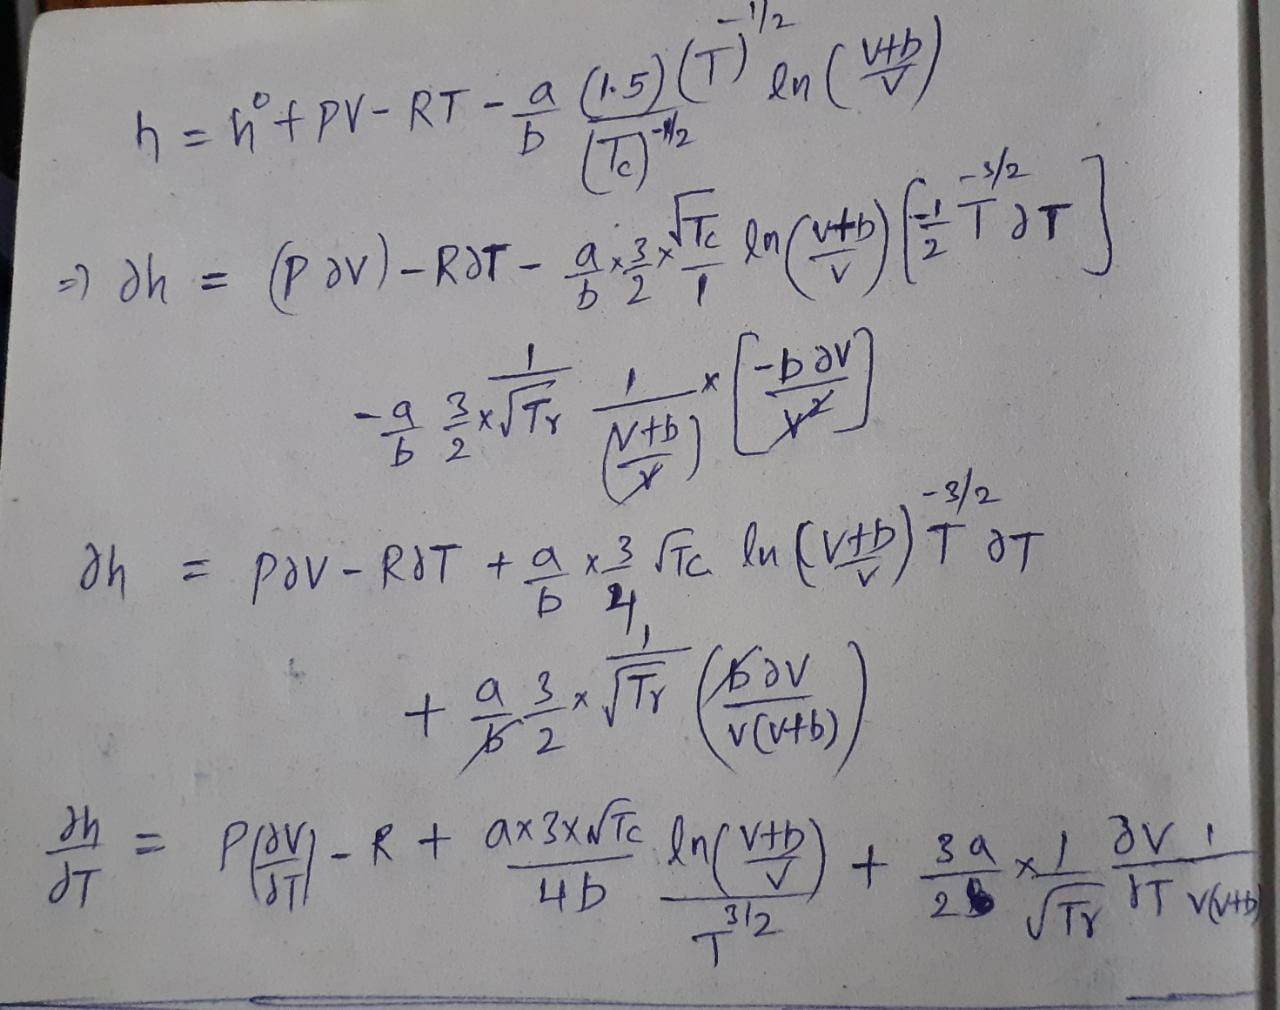 h = h° + PV - RT - a/b (1.5)(T)^-1/2 / (Tc)^-1/2 ln(v+b/v)
⇒ ∂h = (P∂v) - R∂T - a/b × 3/2 × √Tc/1 ln(v+b/v) [-1/2 T^-3/2 ∂T]
- a/b 3/2 × 1/√Tr 1/(v+b/v) × [-b∂v/v²]
∂h = P∂v - R∂T + a/b × 3/4 √Tc ln(v+b/v) T^-3/2 ∂T
+ a/b 3/2 × 1/√Tr (b∂v/v(v+b))
∂h/∂T = P(∂v/∂T) - R + a×3×√Tc/4b ln(v+b/v)/T^3/2 + 3a/2 × 1/√Tr ∂v/∂T 1/v(v+b)